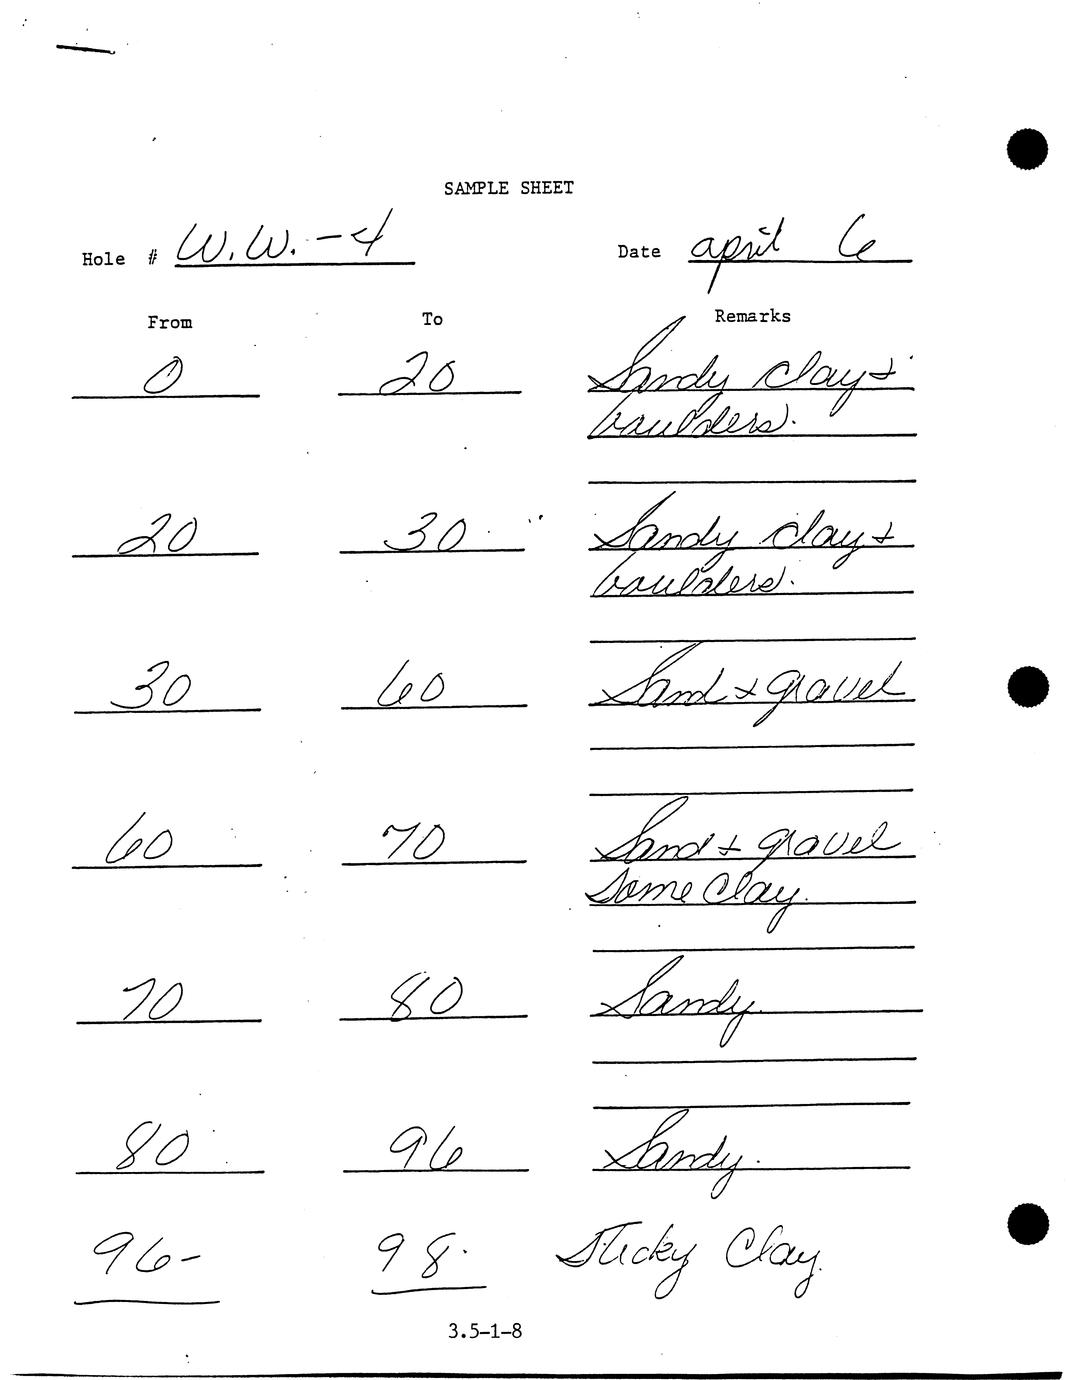 SAMPLE SHEET
Hole # W.W.-4 Date april 6
From To Remarks
0 20 Sandy clay +
baulders.
20 30 Sandy clay +
baulders.
30 60 Sand + gravel
60 70 Sand + gravel
Some Clay.
70 80 Sandy.
80 96 Sandy.
96- 98. Sticky Clay.
3.5-1-8